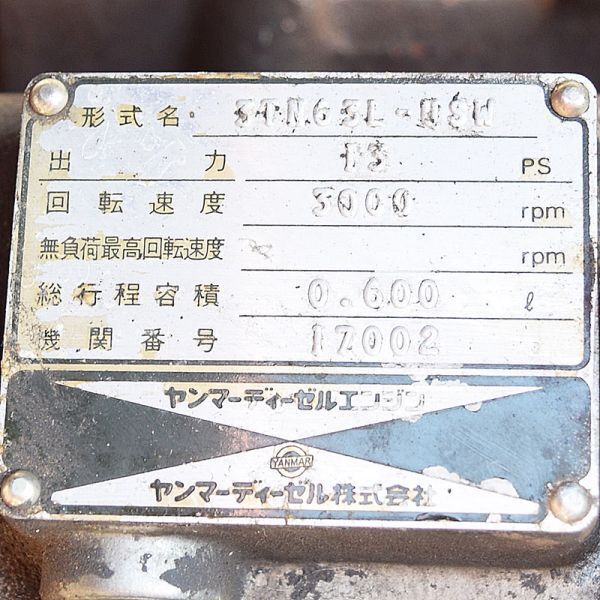 形式名 3TN63L-NSW
出力 13 PS
回転速度 3000 rpm
無負荷最高回転速度 rpm
総行程容積 0.600 ℓ
機関番号 17002
ヤンマーディーゼルエンジン
YANMAR
ヤンマーディーゼル株式会社